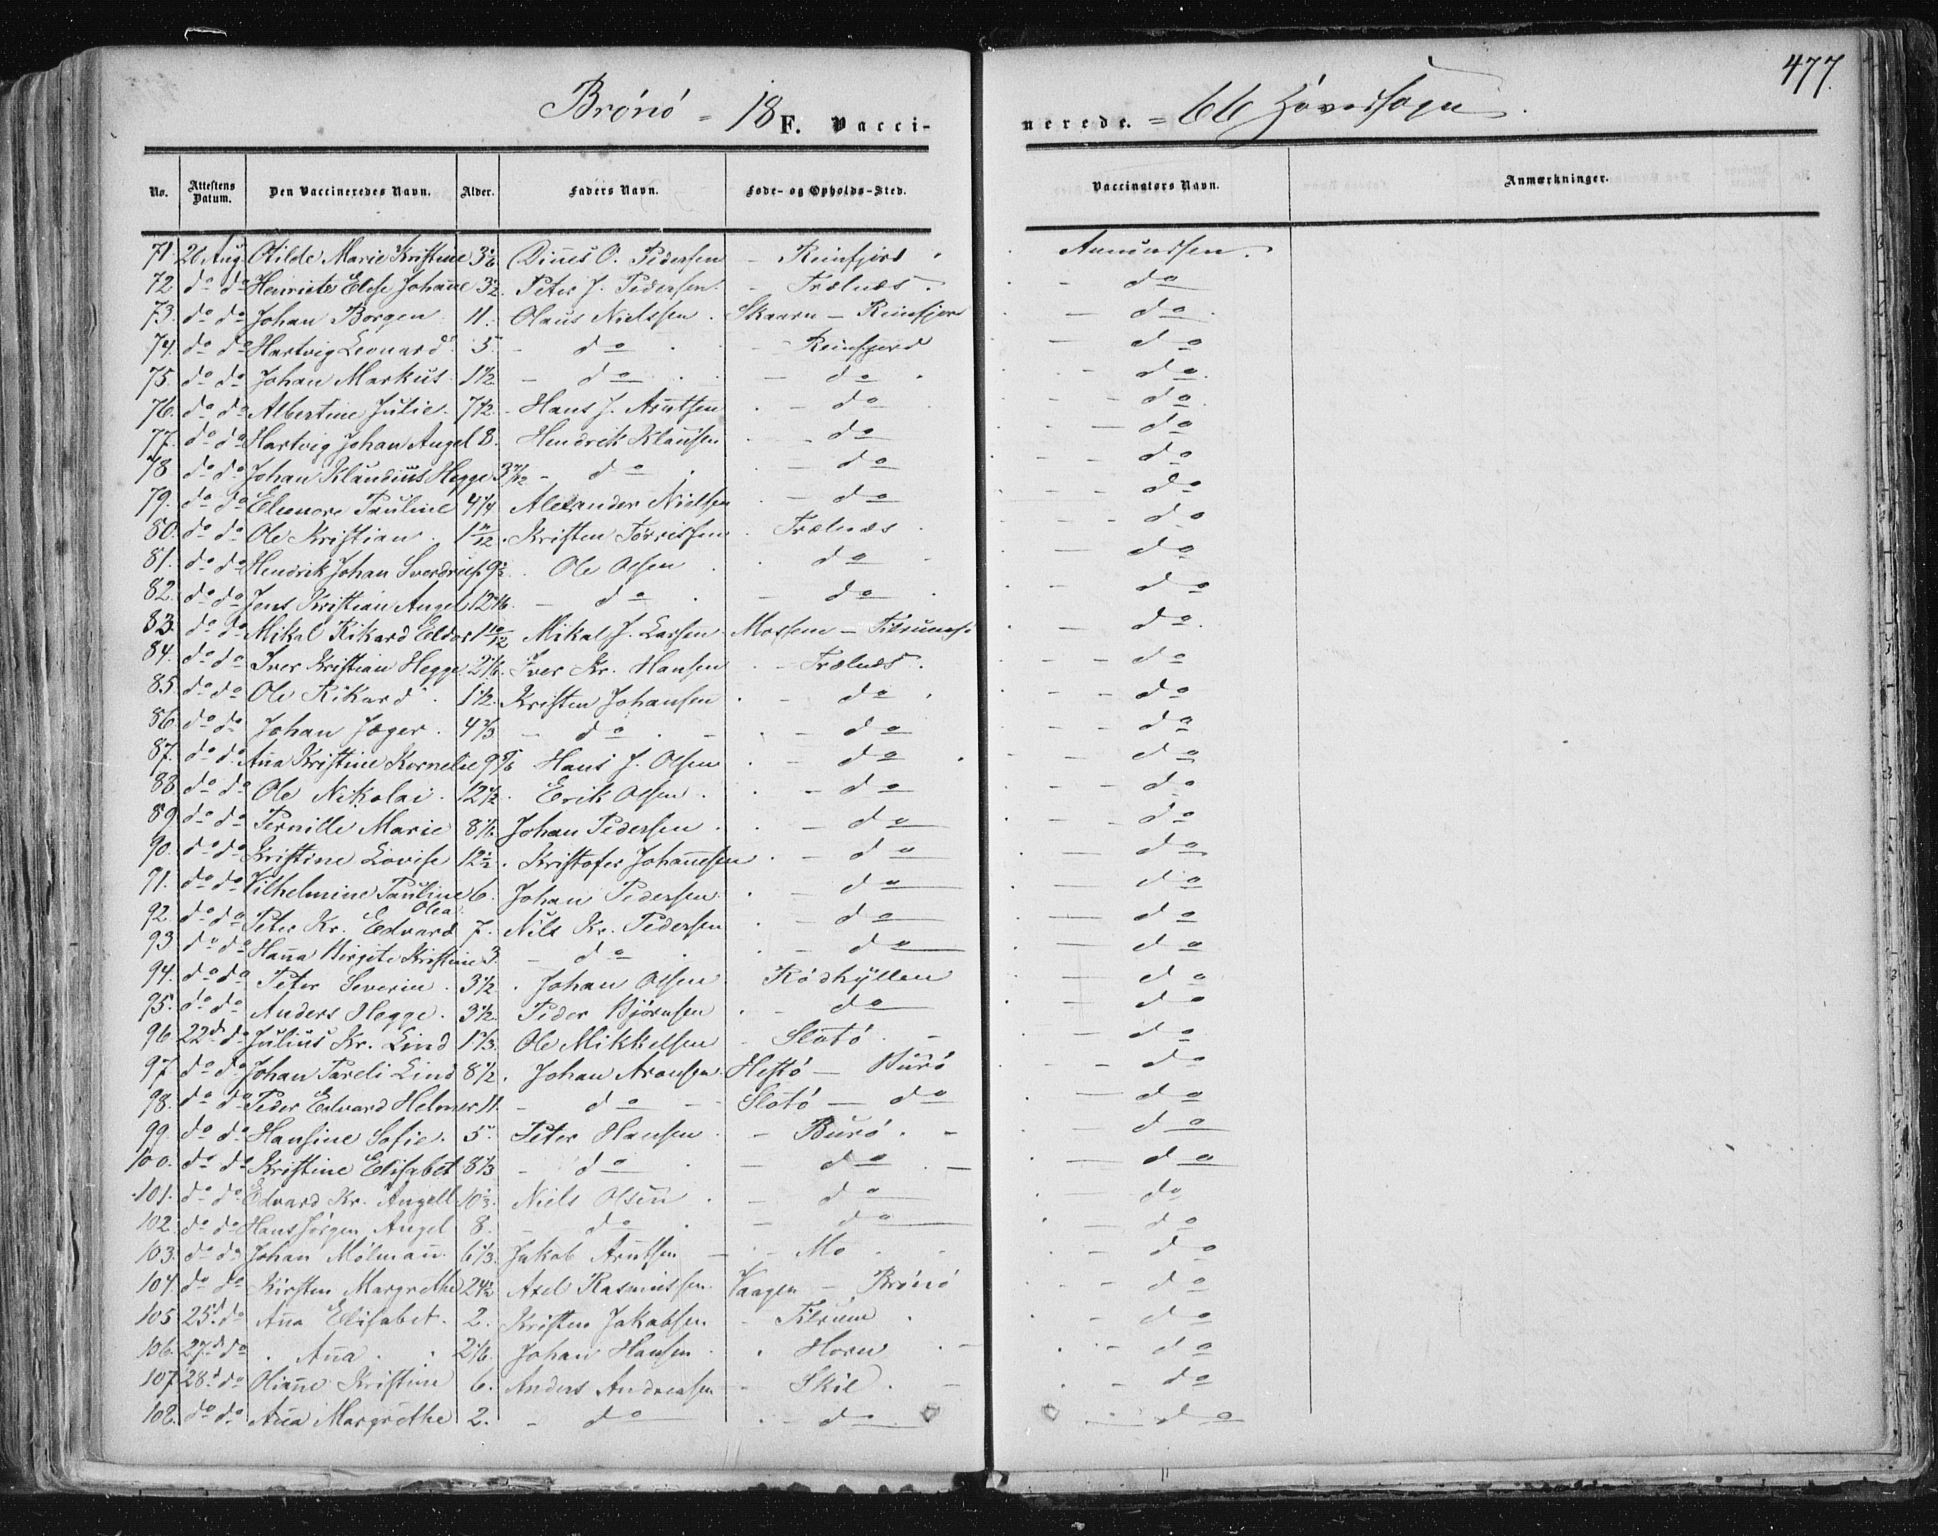 477.
Brönö - 18 F. Vacci-nerede. = 66 Hovedsogn.
No. Attestens Datum. Den Vaccineredes Navn. Alder. Faders Navn. Føde- og Opholds-Sted. Vaccinators Navn. Anmærkninger.
71. 20 Aug. Otilde Marie Kristine Dines O. Pedersen - Reinfjord Amundsen.
72. do do Henriette Elise Johane 3½ Peter J. Pedersen. - Trælnæs. do
73. do do Johan Borgen 11. Olaus Nielssen. Skaaren - Reinfjord do
74. do do Hartvig Leonard 5. do Reinfjord do
75. do do Johan Markus. 1½ do do do
76. do do Albertine Julie. 7½ Hans J. Arntsen do do
77. do do Hartvig Johan Angel 8. Hendrik Klausen do do
78. do do Johan Klaudius Hegge do do do
79. do do Elenore Pauline 4¼ Alexander Nielsen do do
80. do do Ole Kristian. Kristen Torrissen Trælnæs do
81. do do Hendrik Johan Sverdrup Ole Olsen do do
82. do do Jens Kristian Angel do do do
83. do do Mikal Rikard Eldor 1 10/12 Mikal J. Larsen Mossem - Tilrumsf. do
84. do do Iver Kristian Hegge 2 1/6. Iver Kr. Hansen Trælnæs. do
85. do do Ole Rikard 1½. Kristen Johansen do do
86. do do Johan Jæger. 4⅔ do do do
87. do do Ana Kristine Kornelie 9 5/6 Hans J. Olsen do do
88. do do Ole Nikolai. 12½. Erik Olsen. do do
89. do do Pernille Marie 8 1/6. Johan Pedersen. do do
90. do do Kristine Lovise 12½. Kristofer Johannesen do do
91. do do Vilhelmine Pauline Olea 6. Johan Pedersen do do
92. do do Peter Kr. Edvard 7. Nils Kr. Pedersen do do
93. do do Hana Birgite Kristine 3. do do do
94. do do Peter Severin. 3½. Johan Olsen Rödhyllen do
95. do do Anders Hegge. 3½. Peder Bjørnsen do do
96. 22d do Julius Kr. Lind 1⅓. Ole Mikkelsen Slotö do
97. do do Johan Pareli Lind 8½. Johan Aronsen Hestö - Burö do
98. do do Peder Edvard Helmer 11. do Slotö - do do
99. do do Hansine Sofie. 5. Peter Hansen Burö. do
100. do do Kristine Elisabet 8⅓ do do do
101. do do Edvard Kr. Angell Niels Olsen do do
102. do do Hans Jörgen Angel 8. do do do
103. do do Johan Mölman. 6⅓. Jakob Arntsen Mo do
104. do do Kirsten Margrethe Axel Rasmussen. Vaagen - Brönö do
105. 25d do Ana Elisabet. 2. Kristen Jakobsen. Tilrum do
106. 27d do Ana 2 1/6. Johan Hansen. Horn do
107. 28d do Oliane Kristine 6. Anders Andreasen Skil. do
108. do do Ana Margrethe 2. do do do